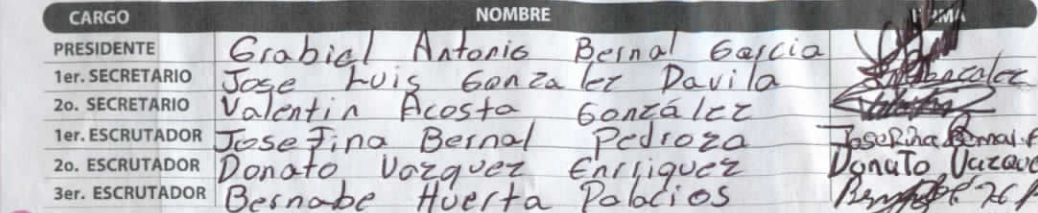 CARGO NOMBRE FIRMA
PRESIDENTE Grabiel Antonio Bernal Garcia
1er. SECRETARIO Jose Luis Gonzalez Davila Gonzalez
2o. SECRETARIO Valentin Acosta González
1er. ESCRUTADOR Josefina Bernal Pedroza Josefina Bernal.P
2o. ESCRUTADOR Donato Vazquez Enrriquez Donato Vazque
3er. ESCRUTADOR Bernabe Huerta Palacios